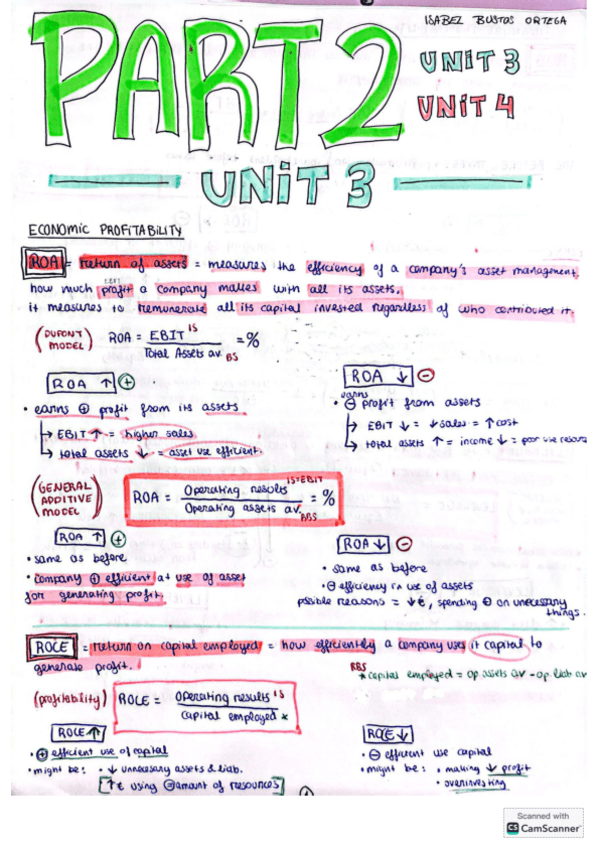 ISABEL BUSTOS ORTEGA
PART 2
UNIT 3
UNIT 4
UNIT 3
ECONOMIC PROFITABILITY
ROA = return of assets = measures the efficiency of a company's asset management,
how much profit a company makes with all its assets.
EBIT
it measures to remunerate all its capital invested regardless of who contributed it.
(DUPONT MODEL) ROA = EBIT IS / Total Assets av. BS = %
ROA ↑ ⊕
ROA ↓ ⊖
• earns ⊕ profit from its assets
earns
• ⊖ profit from assets
↳ EBIT ↑ = higher sales
↳ EBIT ↓ = ↓ sales = ↑ cost
↳ total assets ↓ = asset use efficient
↳ total assets ↑ = income ↓ = poor use resourc
(GENERAL ADDITIVE MODEL) ROA = Operating results IS=EBIT / Operating assets av. RBS = %
ROA ↑ ⊕
ROA ↓ ⊖
• same as before
• same as before
• company ⊕ efficient at use of asset
for generating profit.
• ⊖ efficiency in use of assets
possible reasons = ↓€, spending ⊕ on unnecessary
things.
ROCE = return on capital employed = how efficiently a company uses it capital to
generate profit.
RBS
* capital employed = op assets av - op. liab av
(profitability) ROCE = Operating results IS / capital employed *
ROCE ↑
ROCE ↓
• ⊕ efficient use of capital
• ⊖ efficient use capital
• might be: • ↓ unnecessary assets & liab.
• might be: • making ↓ profit
[↑€ using amount of resources]
• overinvesting
Scanned with
CS CamScanner